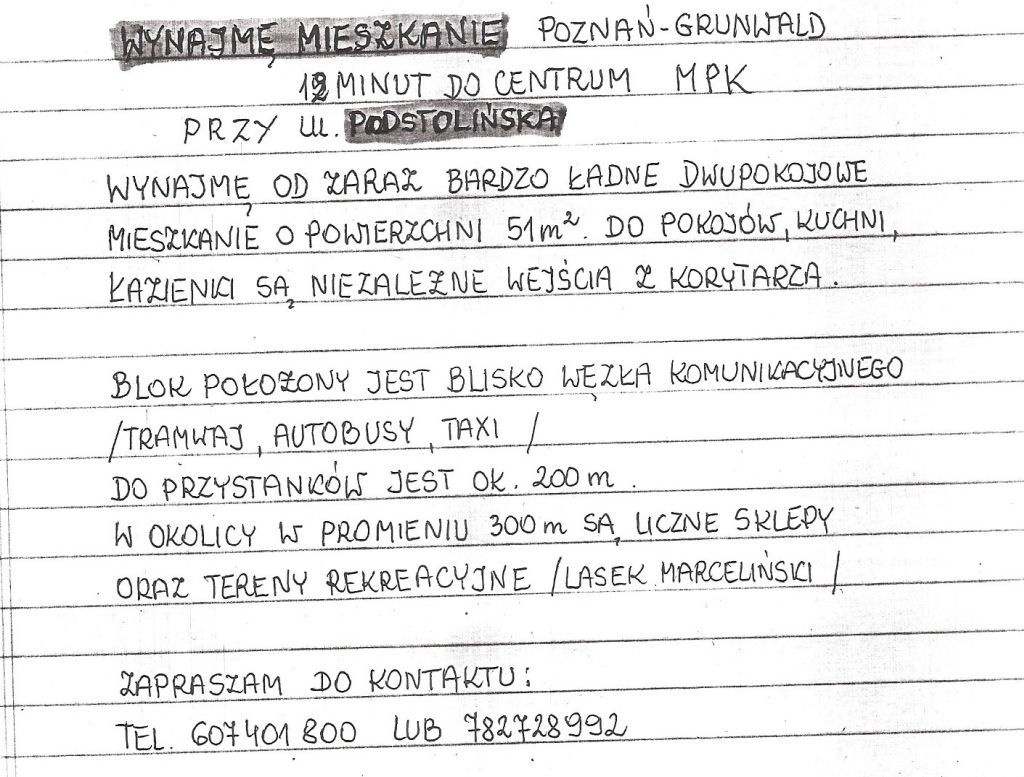 WYNAJMĘ MIESZKANIE POZNAŃ-GRUNWALD
12 MINUT DO CENTRUM MPK
PRZY UL. PODSTOLIŃSKA
WYNAJMĘ OD ZARAZ BARDZO ŁADNE DWUPOKOJOWE
MIESZKANIE O POWIERZCHNI 51m². DO POKOJÓW, KUCHNI,
ŁAZIENKI SĄ NIEZALEŻNE WEJŚCIA Z KORYTARZA.
BLOK POŁOŻONY JEST BLISKO WĘZŁA KOMUNIKACYJNEGO
/TRAMWAJ, AUTOBUSY, TAXI /
DO PRZYSTANKÓW JEST OK. 200 m.
W OKOLICY W PROMIENIU 300m SĄ LICZNE SKLEPY
ORAZ TERENY REKREACYJNE /LASEK MARCELIŃSKI /
ZAPRASZAM DO KONTAKTU:
TEL. 607401 800 LUB 782728992